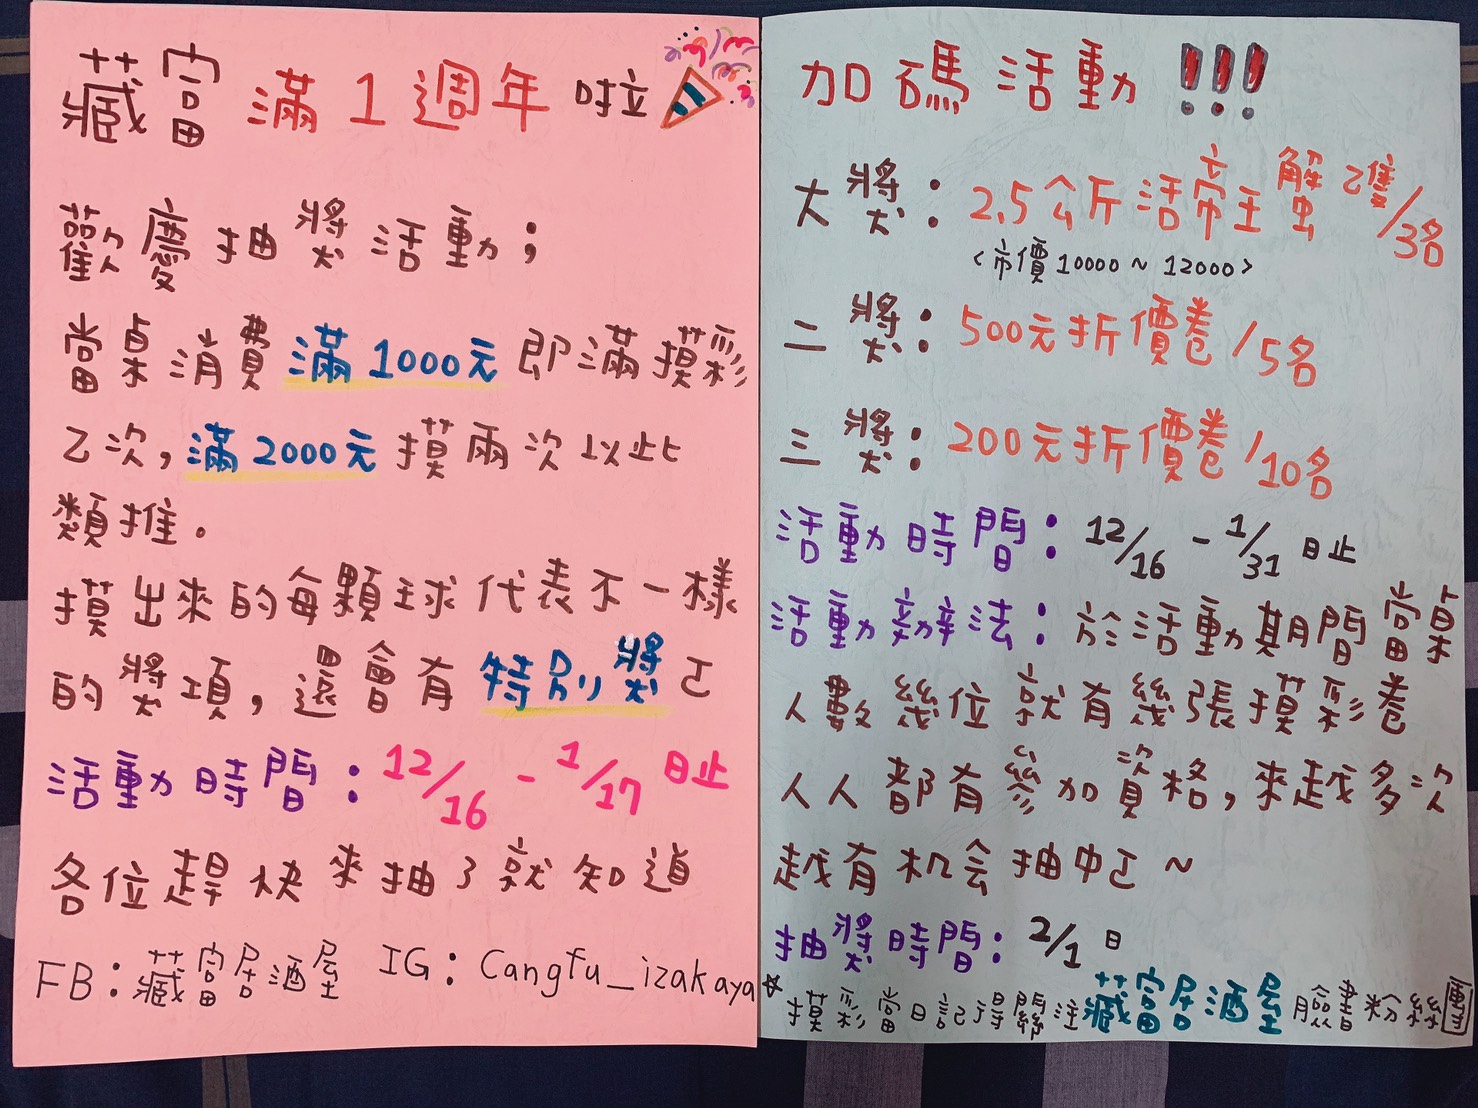 藏富滿1週年啦
歡慶抽獎活動；
當桌消費滿1000元即滿摸彩
乙次,滿2000元摸兩次以此
類推。
摸出來的每顆球代表不一樣
的獎項,還會有特別獎ㄛ
活動時間：12/16 - 1/17日止
各位趕快來抽了就知道
FB：藏富居酒屋 IG：Cangfu_izakaya
加碼活動!!!
大獎：2.5公斤活帝王蟹乙隻/3名
<市價10000~12000>
二獎：500元折價卷/5名
三獎：200元折價卷/10名
活動時間：12/16 - 1/31日止
活動辦法：於活動期間當桌
人數幾位就有幾張摸彩卷
人人都有參加資格,來越多次
越有机会抽中ㄛ~
抽獎時間：2/1日
*摸彩當日記得關注藏富居酒屋臉書粉絲團